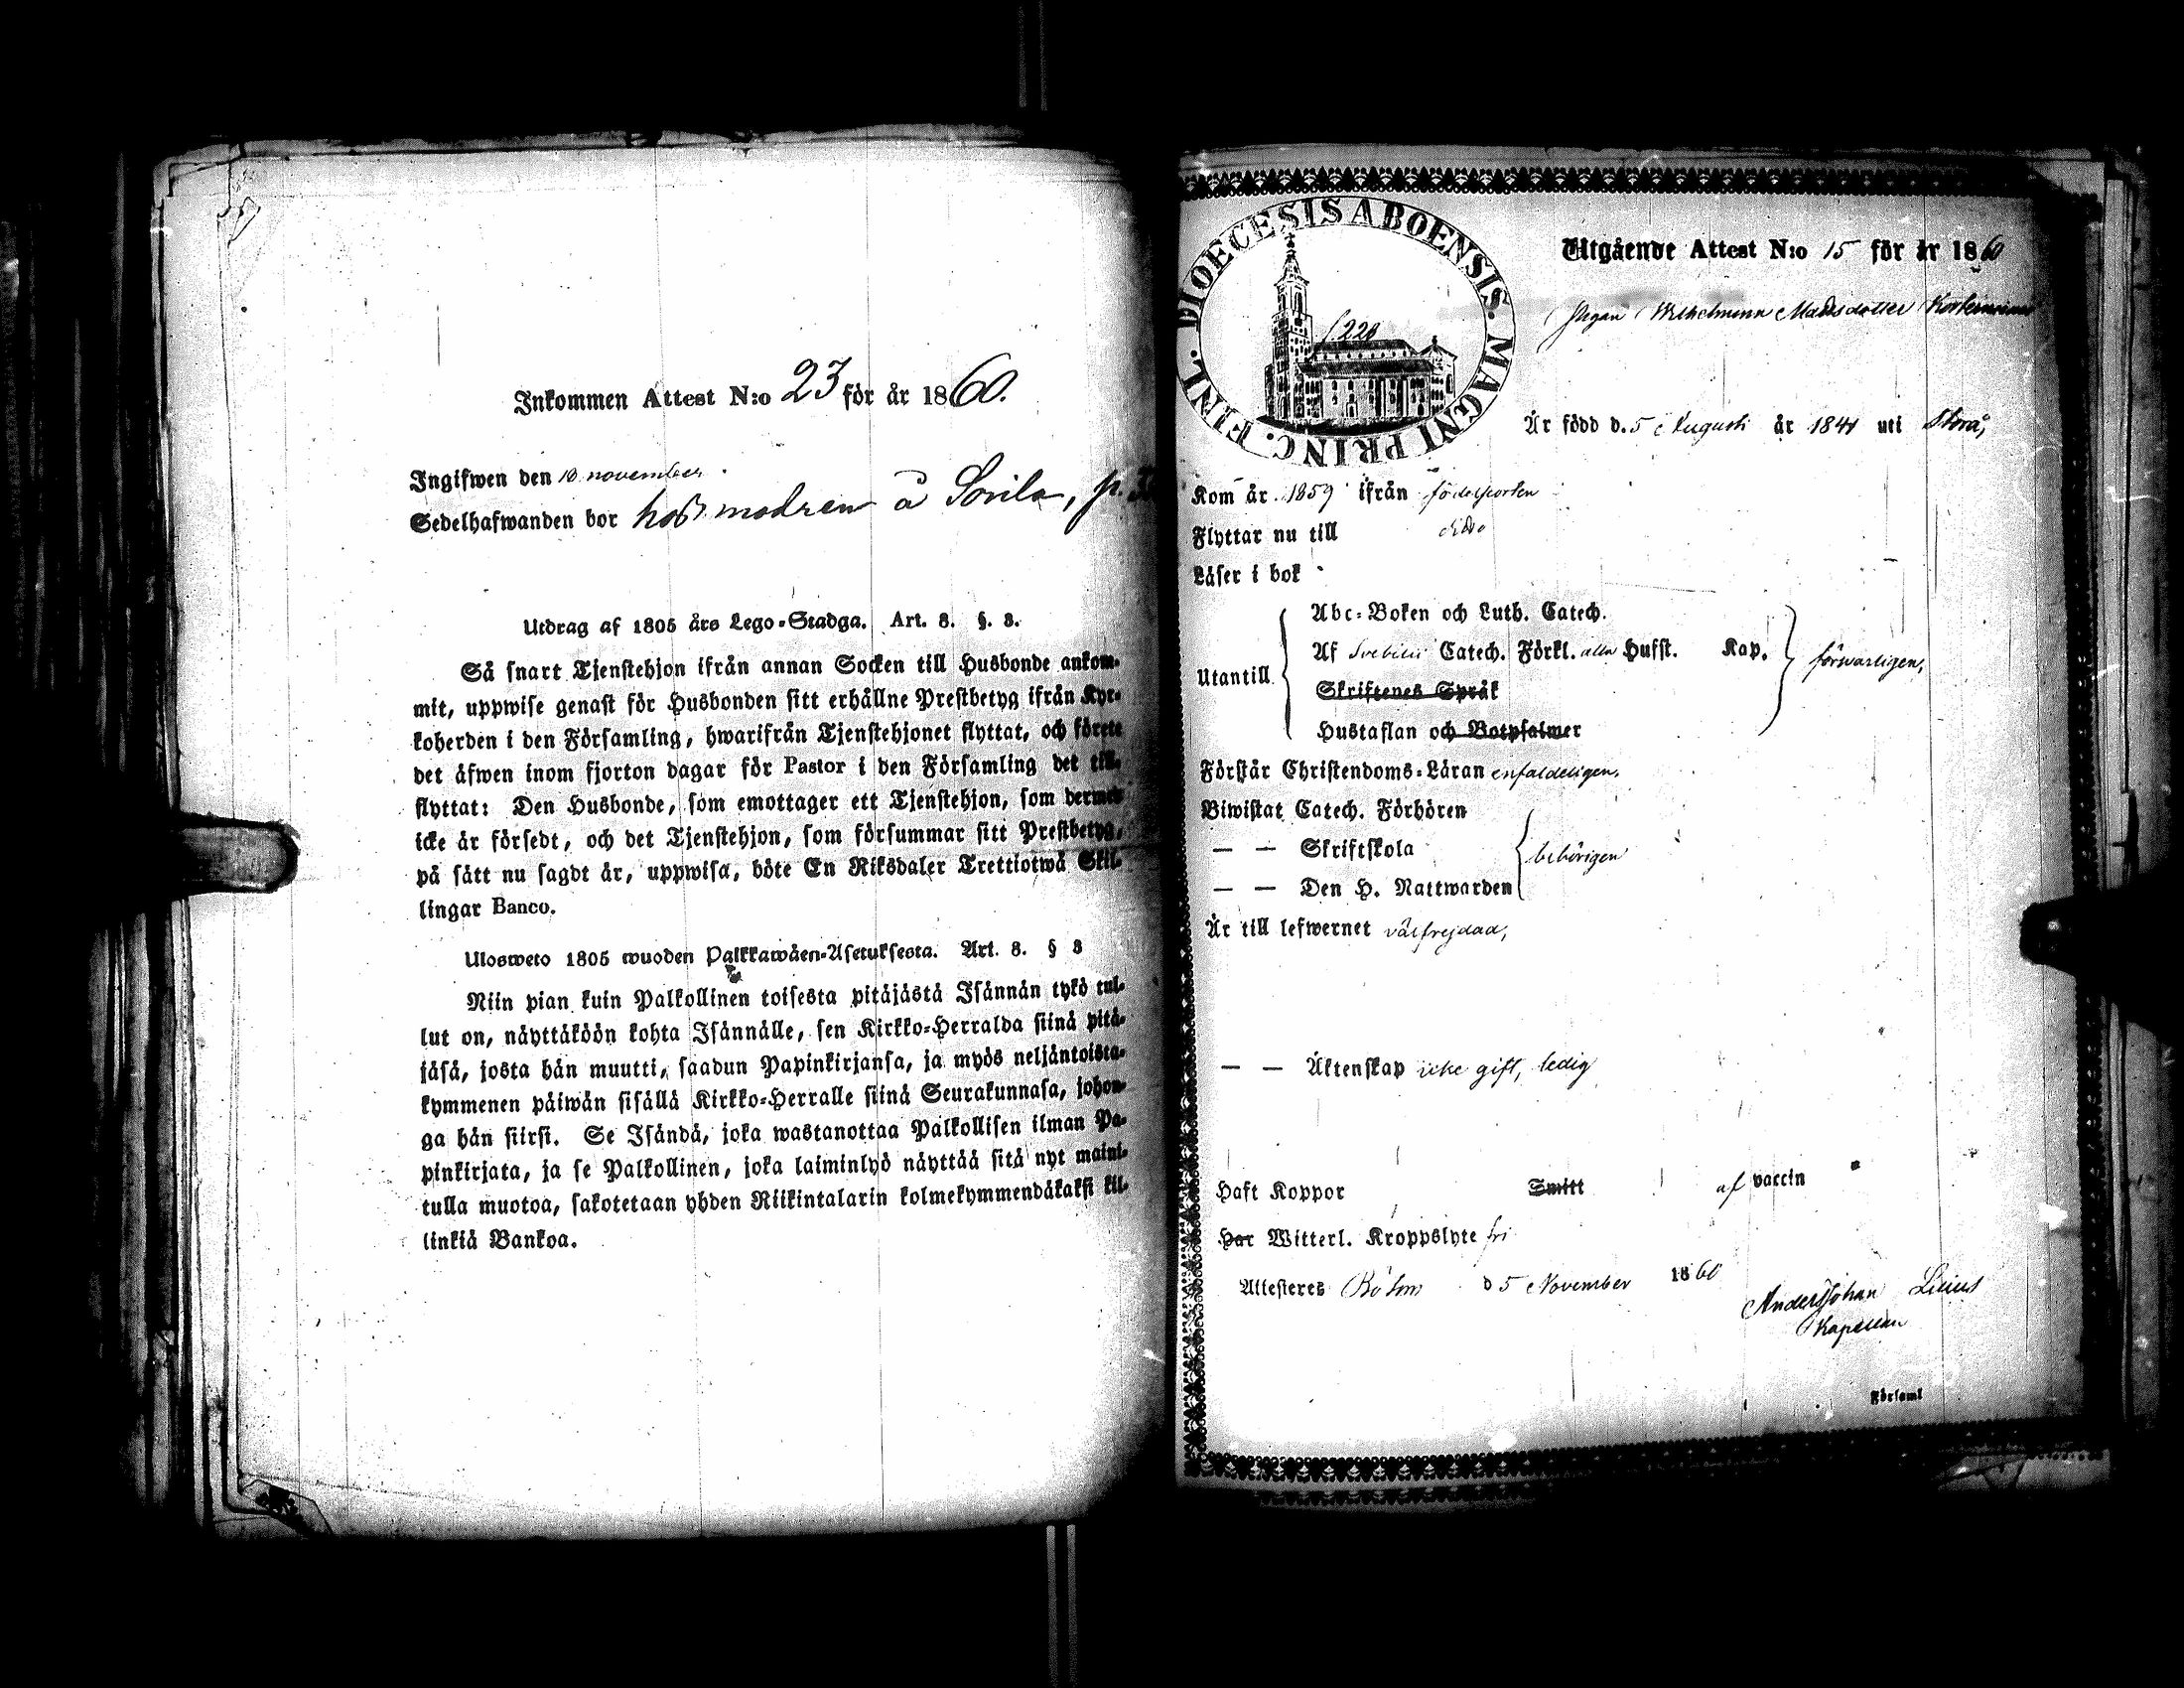 Inkommen Attest N:o 23 för år 1860.
Ingifwen den 10 november
Sedelhafwanden bor hos modren å Sorila, p.
Utdrag af 1805 års Lego-Stadga. Art. 8. §. 3.
Så snart Tjenstehjon ifrån annan Socken till Husbonde ankom-
mit, uppwise genast för Husbonden sitt erhållne Prestbetyg ifrån Kyr-
koherden i den Församling, hwarifrån Tjenstehjonet flyttat, och förete
det äfwen inom fjorton dagar för Pastor i den Församling det till-
flyttat: Den Husbonde, som emottager ett Tjenstehjon, som dermed
icke är försedt, och det Tjenstehjon, som försummar sitt Prestbetyg,
på sätt nu sagdt är, uppwisa, böte En Riksdaler Trettiotwå Skil-
lingar Banco.
Ulosweto 1805 wuoden Palkkawäen-Asetuksesta. Art. 8. § 3
Niin pian kuin Palkollinen toisesta pitäjästä Isännän tykö tul-
lut on, näyttäköön kohta Isännälle, sen Kirkko-Herralda siinä pitä-
jäsä, josta hän muutti, saadun Papinkirjansa, ja myös neljäntoista-
kymmenen päiwän sisällä Kirkko-Herralle siinä Seurakunnasa, johon-
ga hän siirsi. Se Isändä, joka wastanottaa Palkollisen ilman Pa-
pinkirjata, ja se Palkollinen, joka laiminlyö näyttää sitä nyt maini-
tulla muotoa, sakotetaan yhden Riikintalarin kolmekymmendäkaksi kil-
linkiä Bankoa.
DIOECESIS ABOENSIS. MAGNI PRINC. FINL.
f. 228
Utgående Attest N:o 15 för år 1860
Pigan Wilhelmina Mattsdotter
Är född d. 5 Augusti år 1841 uti Storå,
Kom år 1859 ifrån födelseorten
Flyttar nu till dito
Läser i bok
Utantill
Abc-Boken och Luth. Catech.
Af Svebilii Catech. Förkl. alla Hufst. Kap.
Skriftenes Språk
Hustaflan och Botpsalmer
försvarligen,
Förstår Christendoms-Läran enfaldeligen,
Biwistat Catech. Förhören
— — Skriftskola
— — Den H. Nattwarden
behörigen
Är till lefwernet välfrejdad,
— — Äktenskap icke gift, ledig
Haft Koppor Smitt af vaccin
Har Witterl. Kroppslyte fri
Attesteres d 5 November 1860
Anders Johan Lilius
Kapellan
Församl